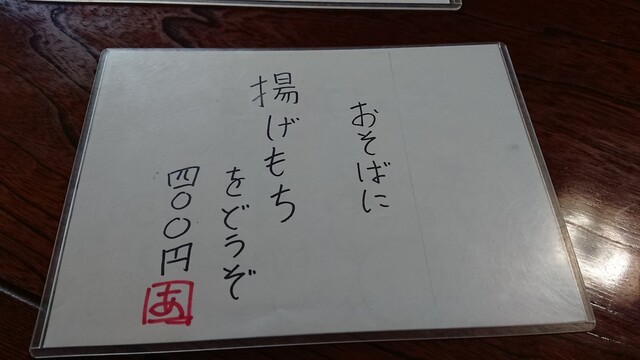 おそばに
揚げもち
をどうぞ
四〇〇円
あ